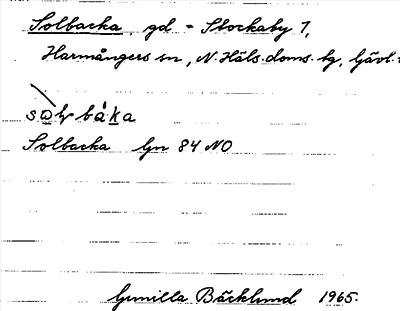 Solbacka, gd - Stockaby 7,
Harmångers sn, N. Häls. doms. bg, Gävl.
Solbacka Gn 84 NO
Gunilla Bäcklund 1965.